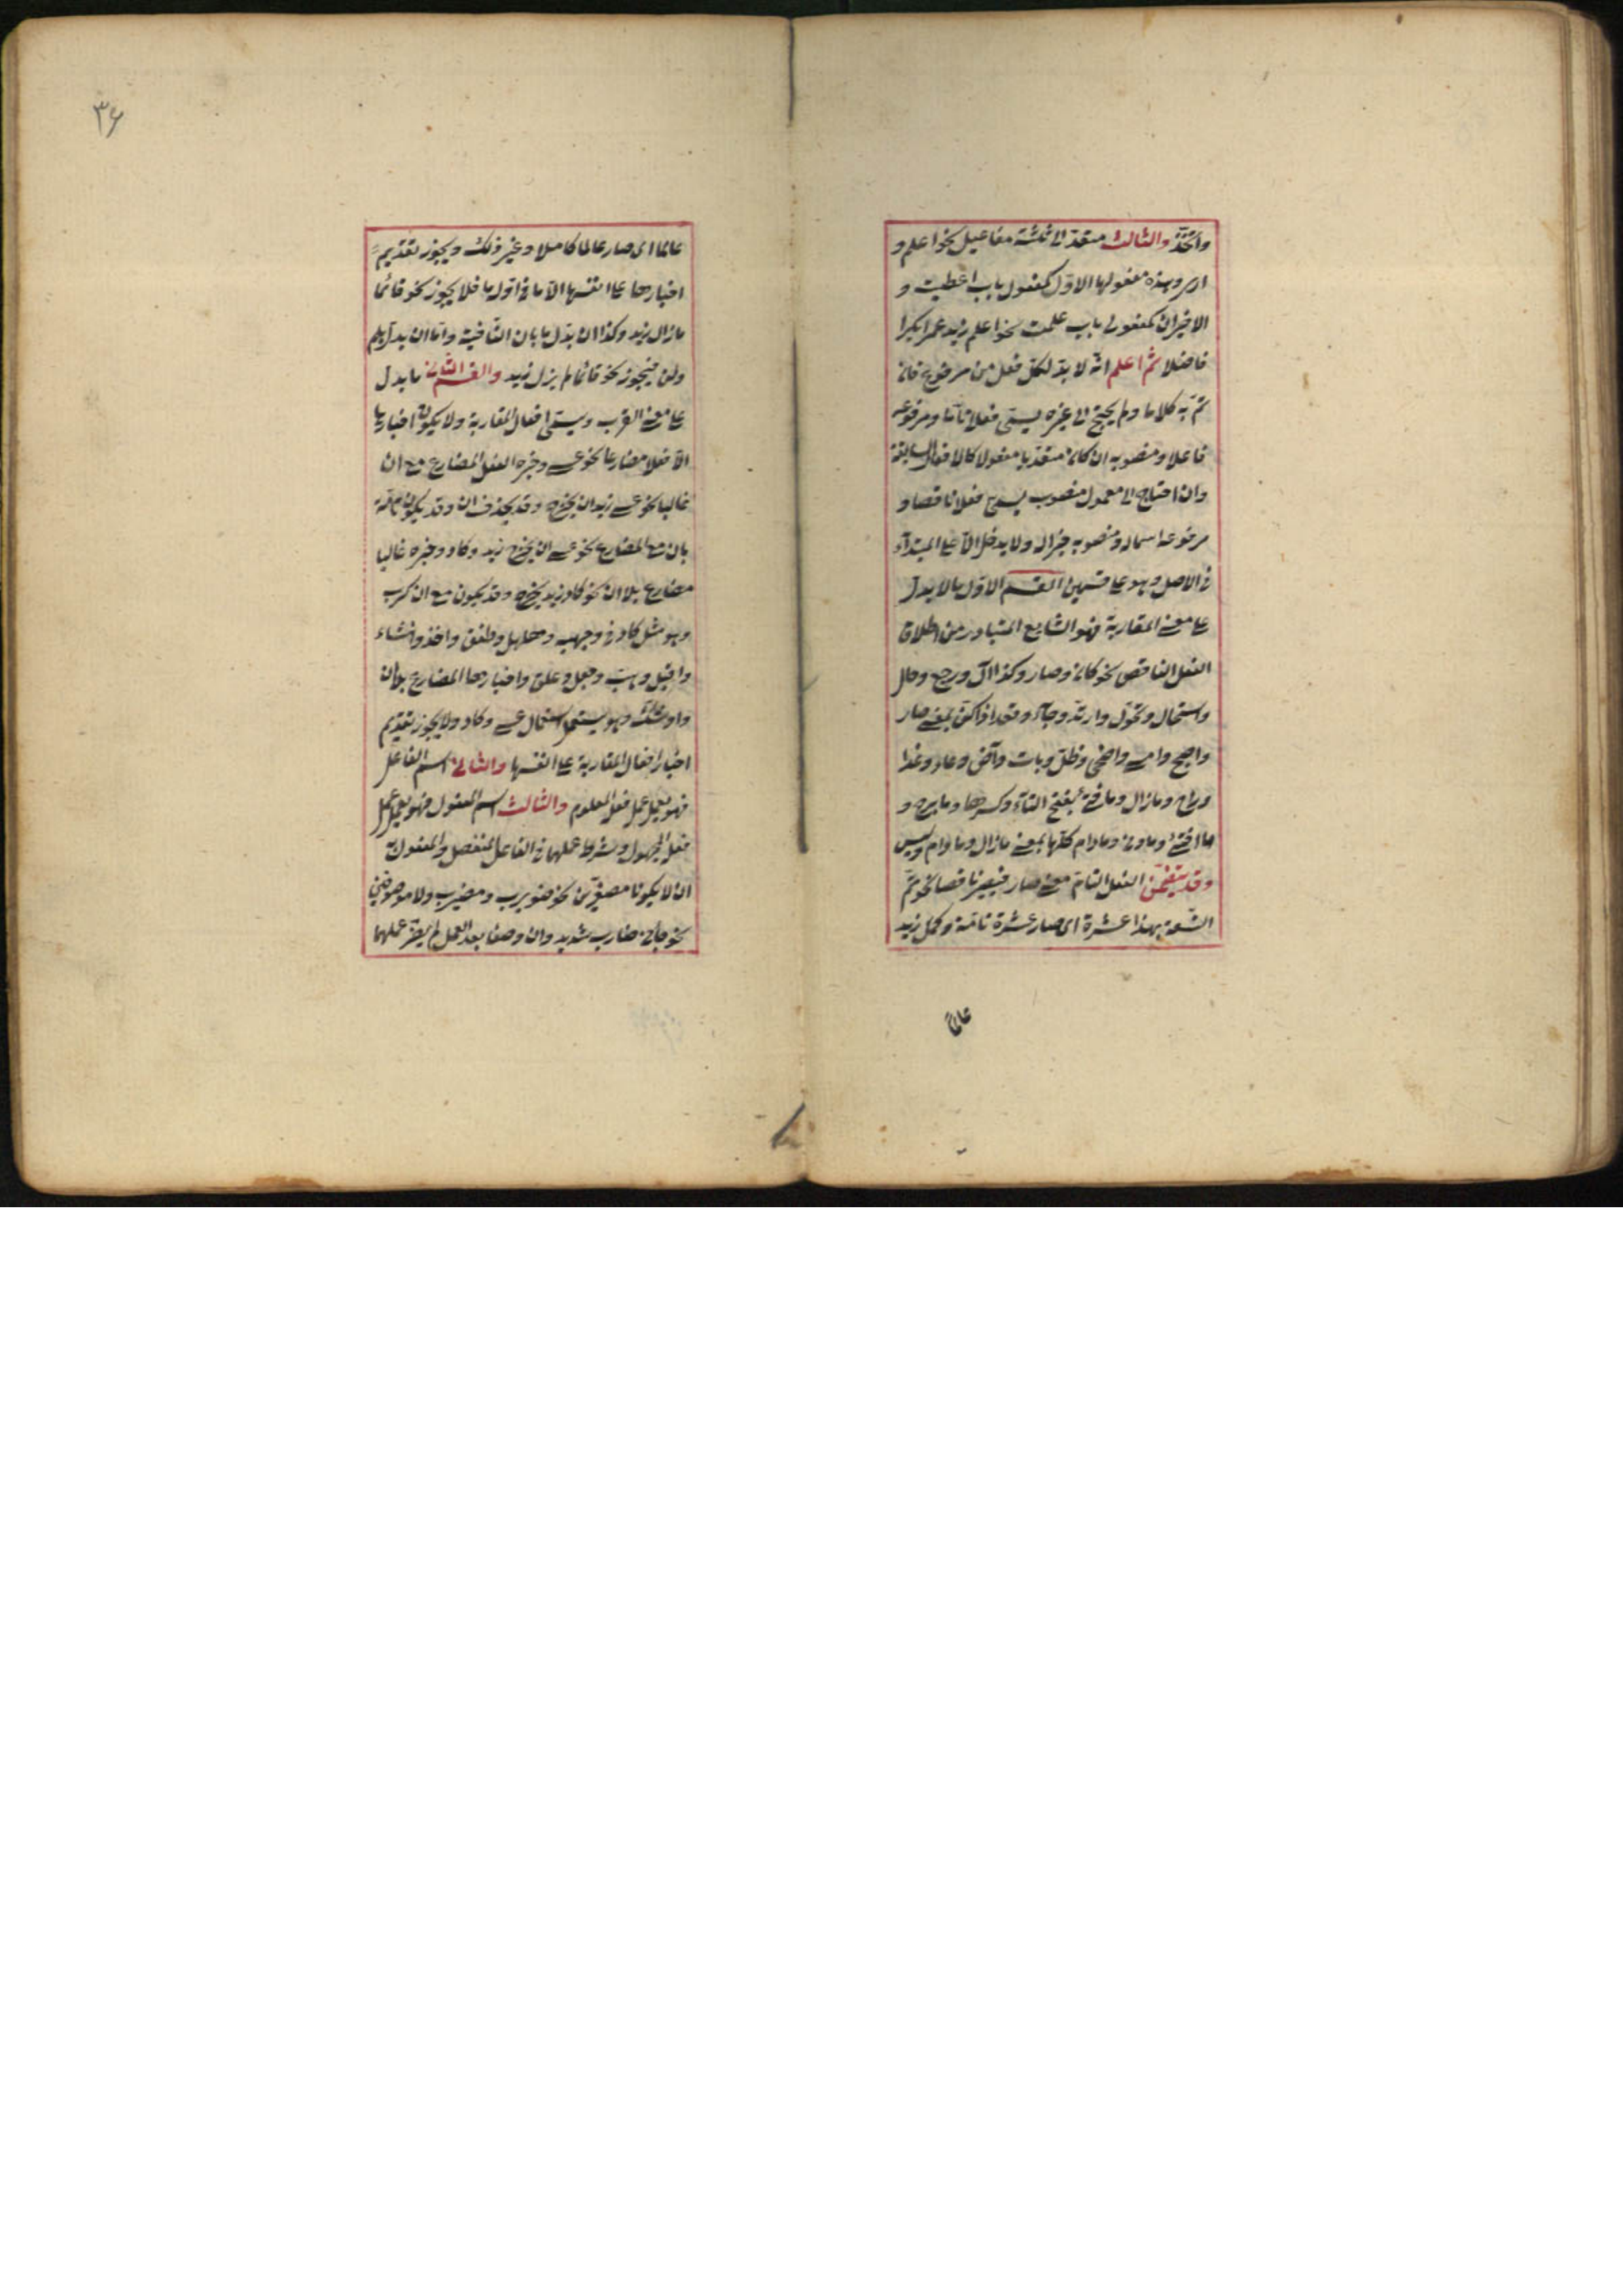 واتخذ والثالث متعد الى ثلثة مفاعيل نحو اعلم و
ارى وهذه مفعولها الاول كمفعول باب اعطيت و
الاخيران كمفعولى باب علمت نحو اعلم زيد عمرا بكرا
فاضلا ثم اعلم انه لا بد لكل فعل من مرفوع فان
تم به كلاما ولم يحتج الى غيره يسمى فعلا تاما ومرفوعه
فاعلا ومنصوبه ان كان متعديا مفعولا كالافعال السابقة
وان احتاج الى معمول منصوب يسمى فعلا ناقصا و
مرفوعه اسما له ومنصوبه خبرا له ولا يدخل الا على المبتدأ
فى الاصل وهو على قسمين القسم الاول ما لا يدل
على معنى المقاربة فهو الشايع المتبادر من اطلاق
الفعل الناقص نحو كان وصار وكذا آل ورجع وحال
واستحال وتحول وارتد وجاء وقعد اذا كن بمعنى صار
واصبح وامسى واضحى وظل وبات وآض وعاد وغدا
وراح ومازال ومافتئ بفتح التاء وكسرها ومابرح و
ما افتئ وماونى ومادام كلها بمعنى مازال ومادام وليس
وقد يتضمن الفعل التام معنى صار فيصير ناقصا نحو تم
التسعة بهذا عشرة اى صار عشرة تامة وكمل زيد
عالما
٣٦
عالما اى صار عالما كاملا وغير ذلك ويجوز تقديم
اخبارها على انفسها الا ما فى اوله ما فلا يجوز نحو قائما
مازال زيد وكذا ان بدل ما بان النافية واما ان بدل بلم
ولن فيجوز نحو قائما لم يزل زيد والقسم الثانى ما يدل
على معنى القرب ويسمى افعال المقاربة ولا يكون اخبارها
الا فعلا مضارعا نحو عسى وخبره الفعل المضارع مع ان
غالبا نحو عسى زيد ان يخرج وقد يحذف ان وقد يكون تامة
بان مع المضارع نحو عسى ان يخرج زيد وكاد وخبره غالبا
مضارع بلا ان نحو كاد زيد يخرج وقد يكون مع ان كرب
وهو مثل كاد فى وجهيه وهلهل وطفق واخذ وانشاء
واقبل وهب وجعل وعلق واخبارها المضارع بلا ان
واوشك وهو يستعمل استعمال عسى وكاد ولا يجوز تقديم
اخبار افعال المقاربة على انفسها والثانى اسم الفاعل
فهو يعمل عمل فعله المعلوم والثالث اسم المفعول فهو يعمل عمل
فعله المجهول وشرط عملهما فى الفاعل المنفصل والمفعول به
ان لا يكونا مصغرين نحو ضويرب ومضيرب ولا موصوفين
نحو جاءنى ضارب شديد وان وصفا بعد العمل لم يضر عملهما